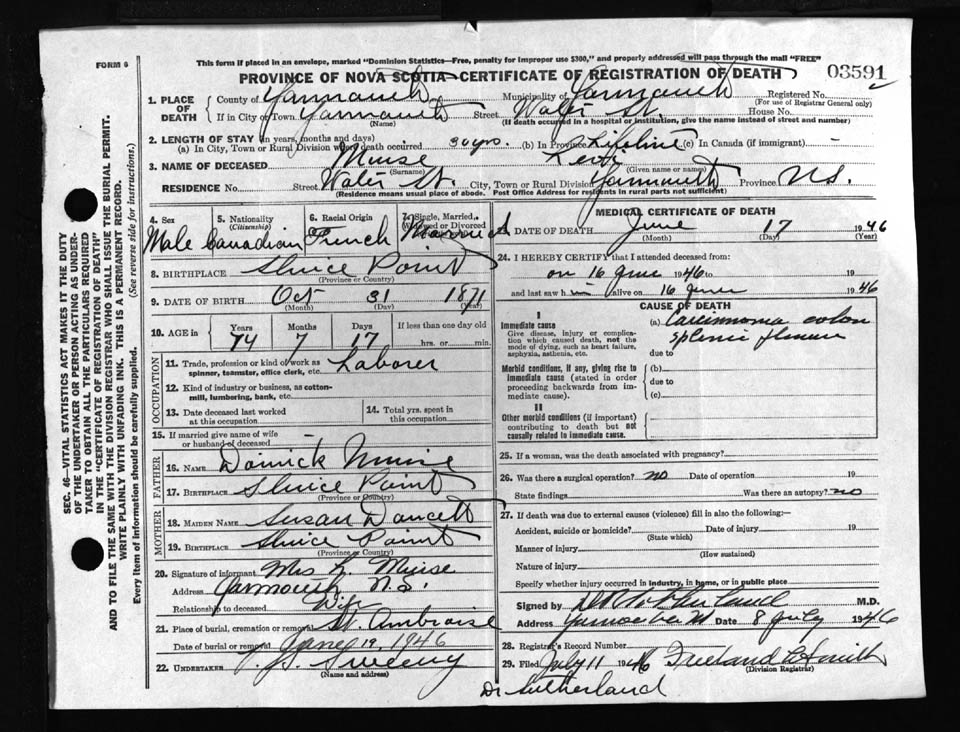 FORM 6
This form if placed in an envelope, marked "Dominion Statistics—Free, penalty for improper use $300," and properly addressed will pass through the mail "FREE"
PROVINCE OF NOVA SCOTIA—CERTIFICATE OF REGISTRATION OF DEATH 03591
1. PLACE OF DEATH { County of Yarmouth Municipality of Yarmouth Registered No.
(For use of Registrar General only)
If in City or Town Yarmouth Street Water St. House No.
(Name) (If death occurred in a hospital or institution, give the name instead of street and number)
2. LENGTH OF STAY (in years, months and days)
(a) In City, Town or Rural Division where death occurred 30 yrs. (b) In Province Lifetime (c) In Canada (if immigrant) —
3. NAME OF DECEASED Muise
(Surname) (Given name or names)
RESIDENCE No. Street Water St. City, Town or Rural Division Yarmouth Province N.S.
(Residence means usual place of abode. Post Office Address for residents in rural parts not sufficient)
SEC. 46—VITAL STATISTICS ACT MAKES IT THE DUTY
OF THE UNDERTAKER OR PERSON ACTING AS UNDER-
TAKER TO OBTAIN ALL THE PARTICULARS REQUIRED
IN THE "CERTIFICATE OF REGISTRATION OF DEATH"
AND TO FILE THE SAME WITH THE DIVISION REGISTRAR WHO SHALL ISSUE THE BURIAL PERMIT.
WRITE PLAINLY WITH UNFADING INK. THIS IS A PERMANENT RECORD.
Every item of information should be carefully supplied. (See reverse side for instructions.)
4. Sex
Male
5. Nationality
(Citizenship)
Canadian
6. Racial Origin
French
7. Single, Married, Widowed or Divorced
Married
8. BIRTHPLACE Sluice Point
(Province or Country)
9. DATE OF BIRTH Oct 31 1871
(Month) (Day) (Year)
10. AGE in { Years Months Days If less than one day old
74 7 17 hrs. or min.
OCCUPATION
11. Trade, profession or kind of work as Laborer
spinner, teamster, office clerk, etc.
12. Kind of industry or business, as cotton-
mill, lumbering, bank, etc.
13. Date deceased last worked
at this occupation
14. Total yrs. spent in
this occupation
15. If married give name of wife
or husband of deceased
FATHER
16. NAME Muise
17. BIRTHPLACE Sluice Point
(Province or Country)
MOTHER
18. MAIDEN NAME Susan Doucett
19. BIRTHPLACE Sluice Point
(Province or Country)
20. Signature of informant Mrs L. Muise
Address Yarmouth N.S.
Relationship to deceased Wife
21. Place of burial, cremation or removal St. Ambroise
Date of burial or removal June 19, 1946
22. UNDERTAKER Sweeny
(Name and address)
MEDICAL CERTIFICATE OF DEATH
23. DATE OF DEATH June 17 1946
(Month) (Day) (Year)
24. I HEREBY CERTIFY that I attended deceased from:
on 16 June 1946 to 19
and last saw him alive on 16 June 1946
CAUSE OF DEATH
I
Immediate cause
Give disease, injury or complica-
tion which caused death, not the
mode of dying, such as heart failure,
asphyxia, asthenia, etc.
(a) Carcinoma colon
splenic flexure
due to
Morbid conditions, if any, giving rise to
immediate cause (stated in order
proceeding backwards from im-
mediate cause).
(b)
due to
(c)
II
Other morbid conditions (if important)
contributing to death but not
causally related to immediate cause.
25. If a woman, was the death associated with pregnancy?
26. Was there a surgical operation? no Date of operation 19
State findings Was there an autopsy? no
27. If death was due to external causes (violence) fill in also the following:—
Accident, suicide or homicide? Date of injury 19
(State which)
Manner of injury
(How sustained)
Nature of injury
Specify whether injury occurred in industry, in home, or in public place
Signed by Sutherland M.D.
Address Yarmouth Date 8 July 1946
28. Registrar's Record Number
29. Filed July 11 1946 Freeland Smith
(Division Registrar)
Dr Sutherland